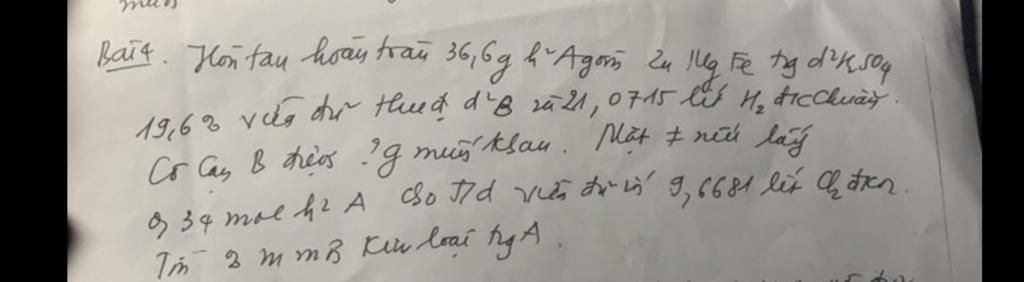 Bài 4. Hòa tan hoàn toàn 36,6g h² A gồm Zn Mg Fe tg d² H₂SO₄
19,6% vừa đủ thu đc d² B và 21,0715 lít H₂ đkchuẩn.
Cô cạn B được ?g muối khan. Mặt ≠ nếu lấy
0,34 mol h² A cho T/d vừa đủ với 9,6681 lít Cl₂ đkcn.
Tính % m mỗi kim loại tg A.